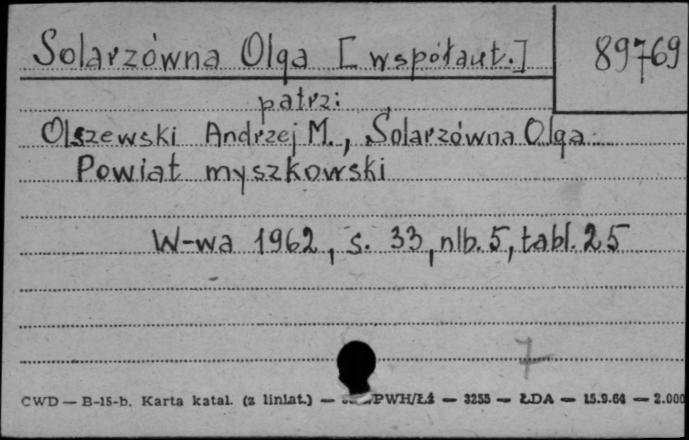 Solarzówna Olga [współaut.]
89769
patrz:
Olszewski Andrzej M., Solarzówna Olga
Powiat myszkowski
W-wa 1962, s. 33, nlb. 5, tabl. 25
7
CWD — B-15-b. Karta katal. (z liniat.) — PWH/Łź — 3255 — ŁDA — 15.9.64 — 2.000